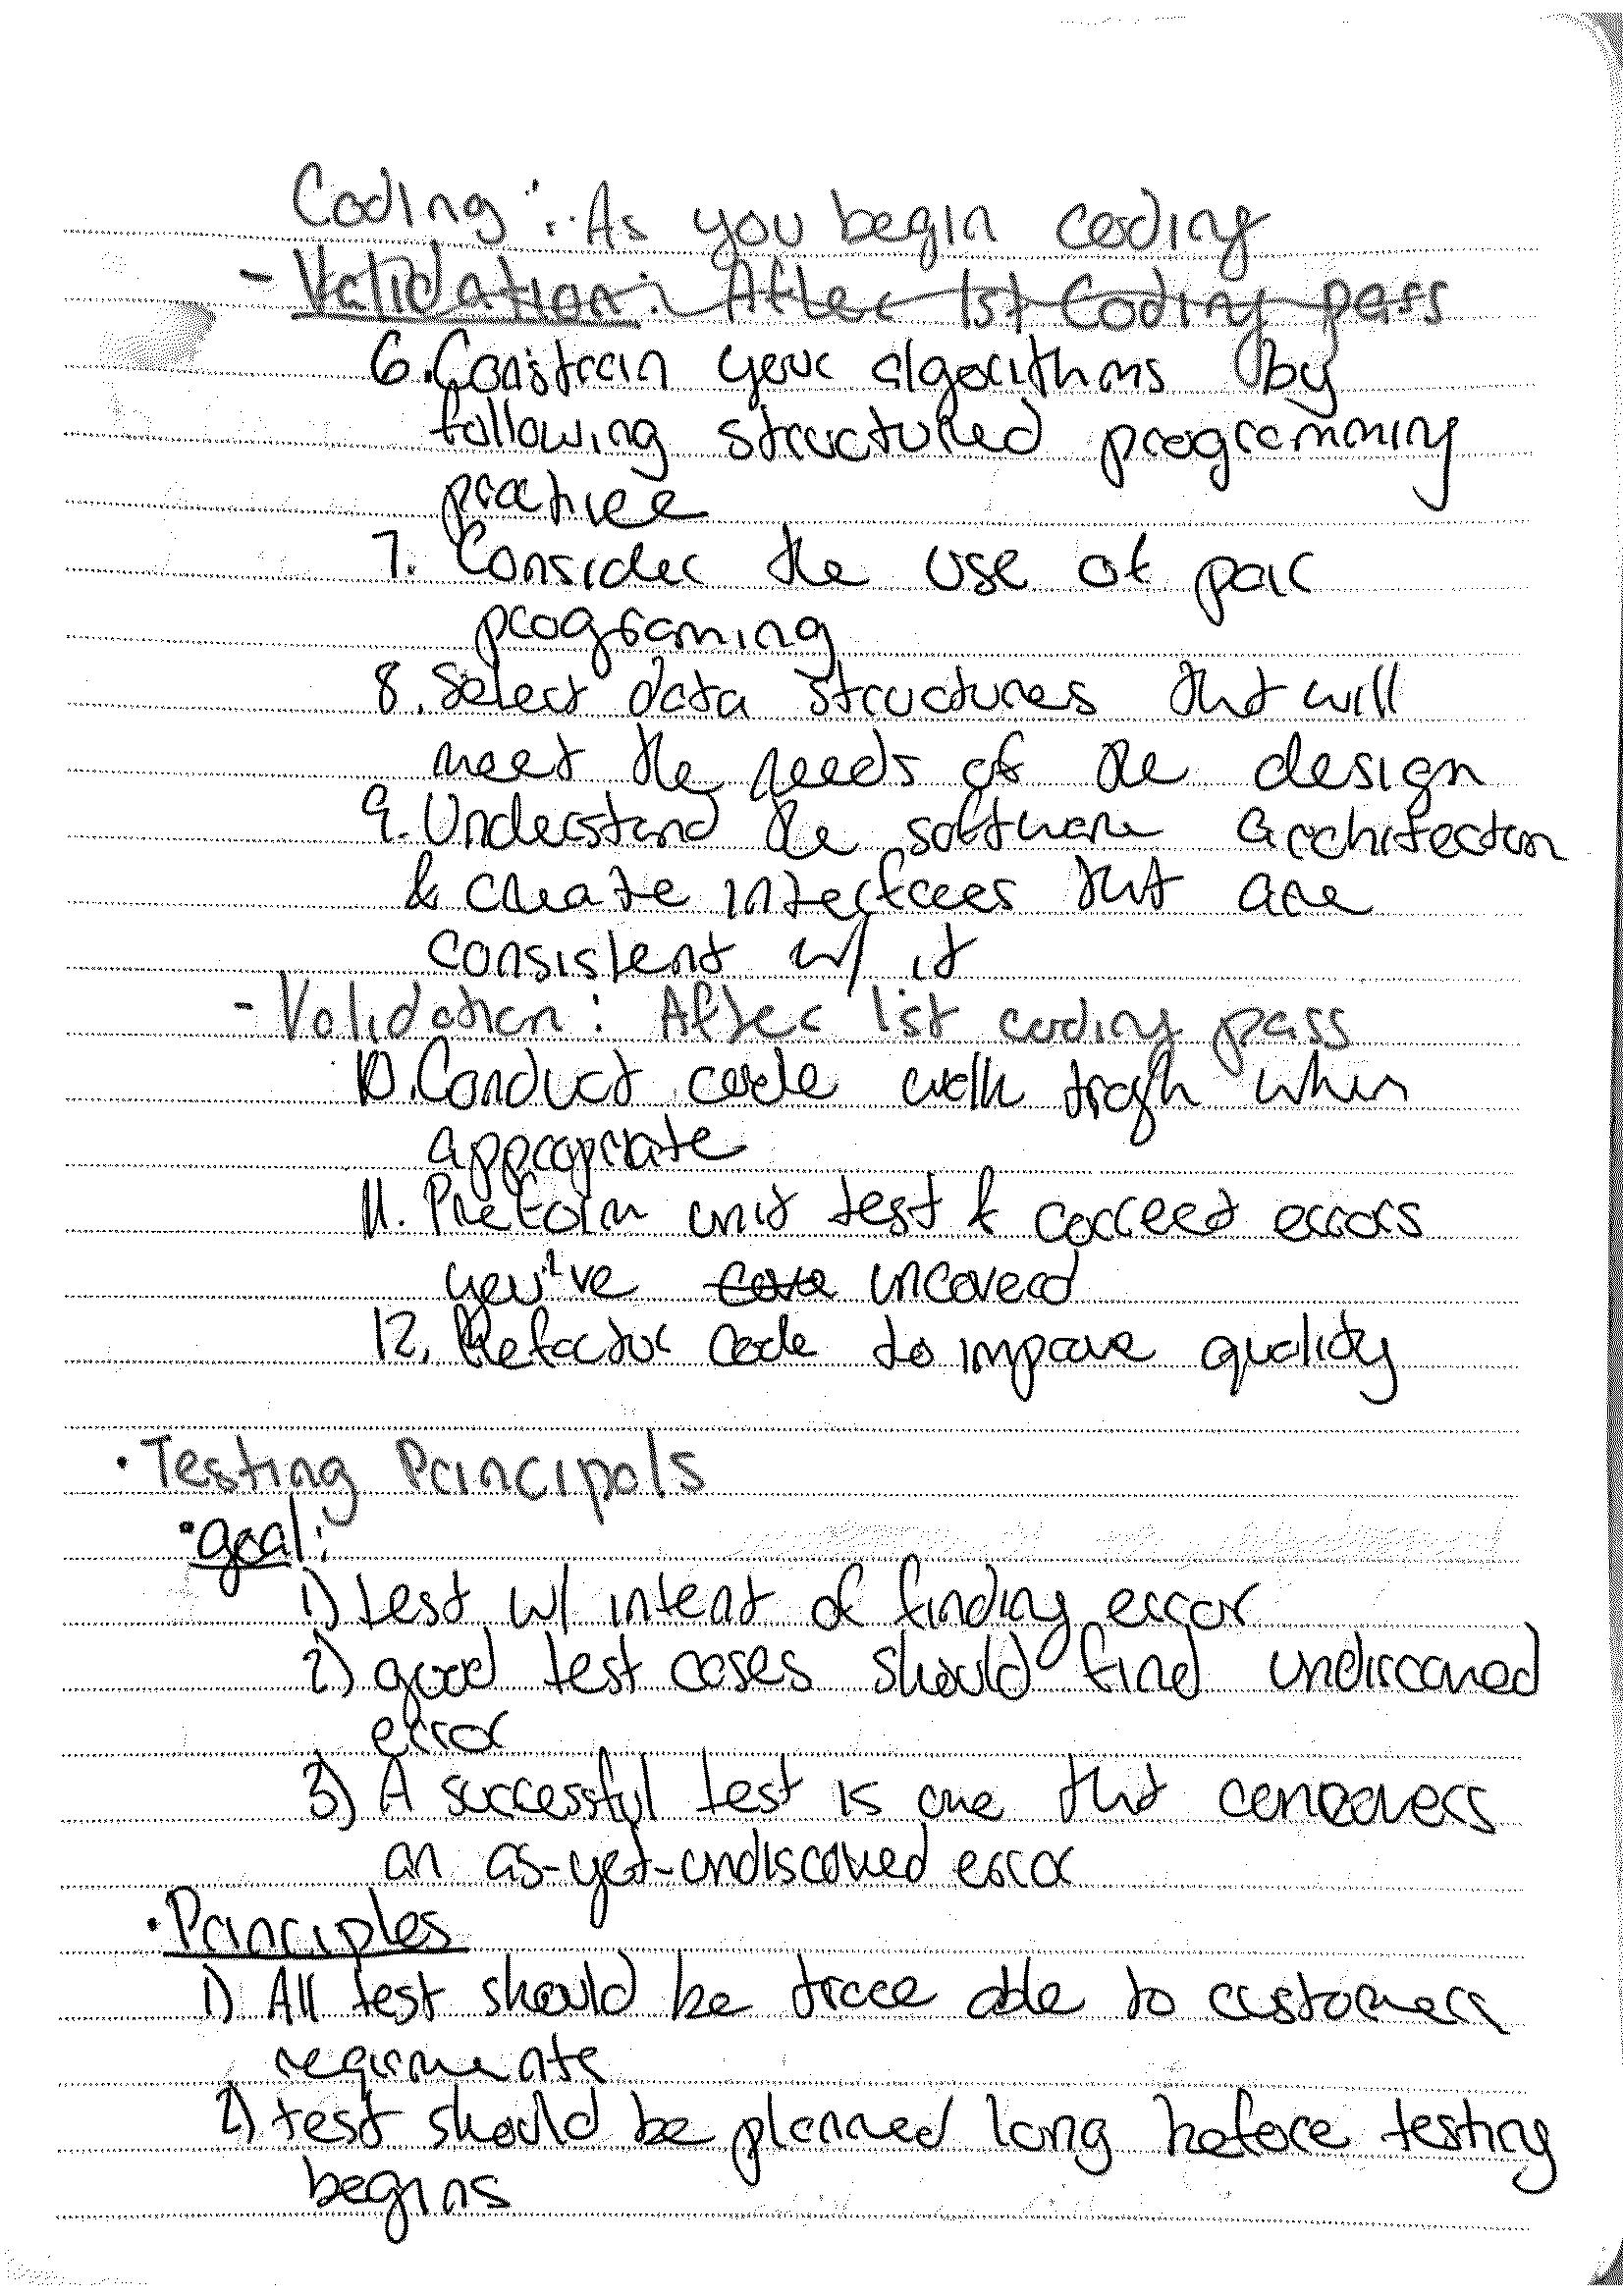 Coding: As you begin coding
- Validation: After 1st Coding pass
6. Constrain your algorithms by
following structured programming
practice
7. Consider the use of pair
programing
8. Select data structures that will
meet the needs of the design
9. Understand the software architecture
& create interfaces that are
consistent w/ it
- Validation: After 1st coding pass
10. Conduct code walk trogh when
appropriate
11. Preform unit test & correct errors
you've uncoverd
12. Refactor code to improve quality
• Testing Principals
• goal:
1) test w/ intent of finding error
2) good test cases should find undiscovered
error
3) A successful test is one that
an as-yet-undiscovered error
• Principles
1) All test should be trace able to customers
requirments
2) test should be planned long before testing
begins